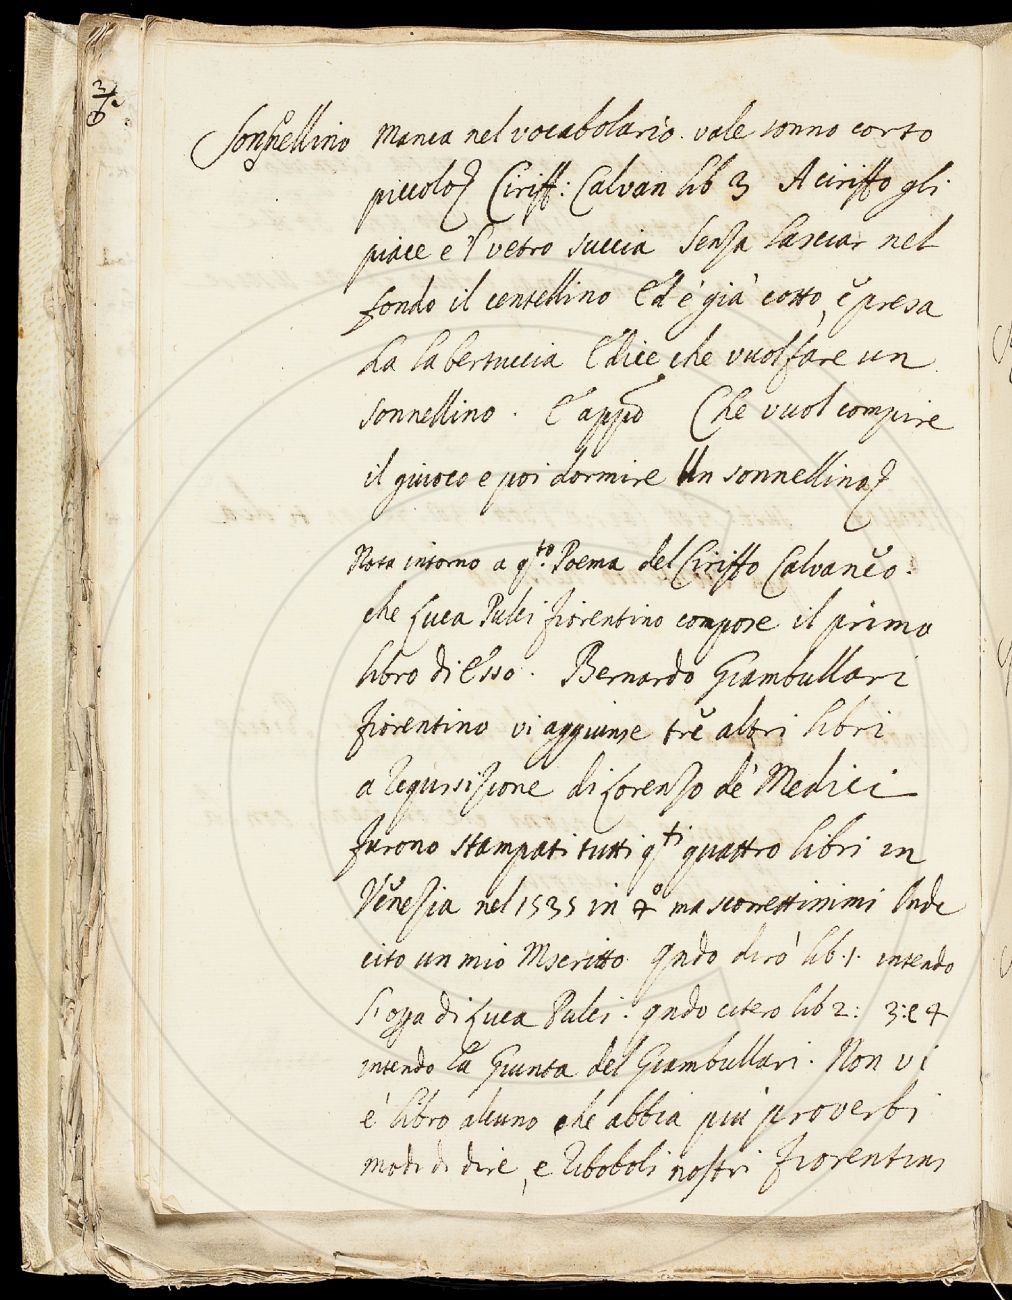 Sonnellino Manca nel vocabolario. vale sonno corto
piccolo Ciriff: Calvan lib 3 A ciriffo gli
piace e 'l vetro succia Senza lasciar nel
fondo il centellino Ed è già cotto, e presa
ha la bertuccia E dice che vuol fare un
sonnellino. E app.o Che vuol compire
il giuoco e poi dormire Un sonnellino
Nota intorno a q.to Poema del Ciriffo Calvaneo:
che Luca Pulci fiorentino compose il primo
libro di Esso. Bernardo Giambullari
fiorentino vi aggiunse trè altri libri
a requisizione di Lorenzo de' Medici
furono stampati tutti q.ti quattro libri in
Venezia nel 1535 in 4.o ma scorrettissimi Onde
cito un mio Mscritto. qndo dirò lib. 1. intendo
l'opa di Luca Pulci: qndo citero lib 2: 3: e 4
intendo la Giunta del Giambullari. Non vi
è libro alcuno che abbia più proverbi
modi di dire, e riboboli nostri fiorentini